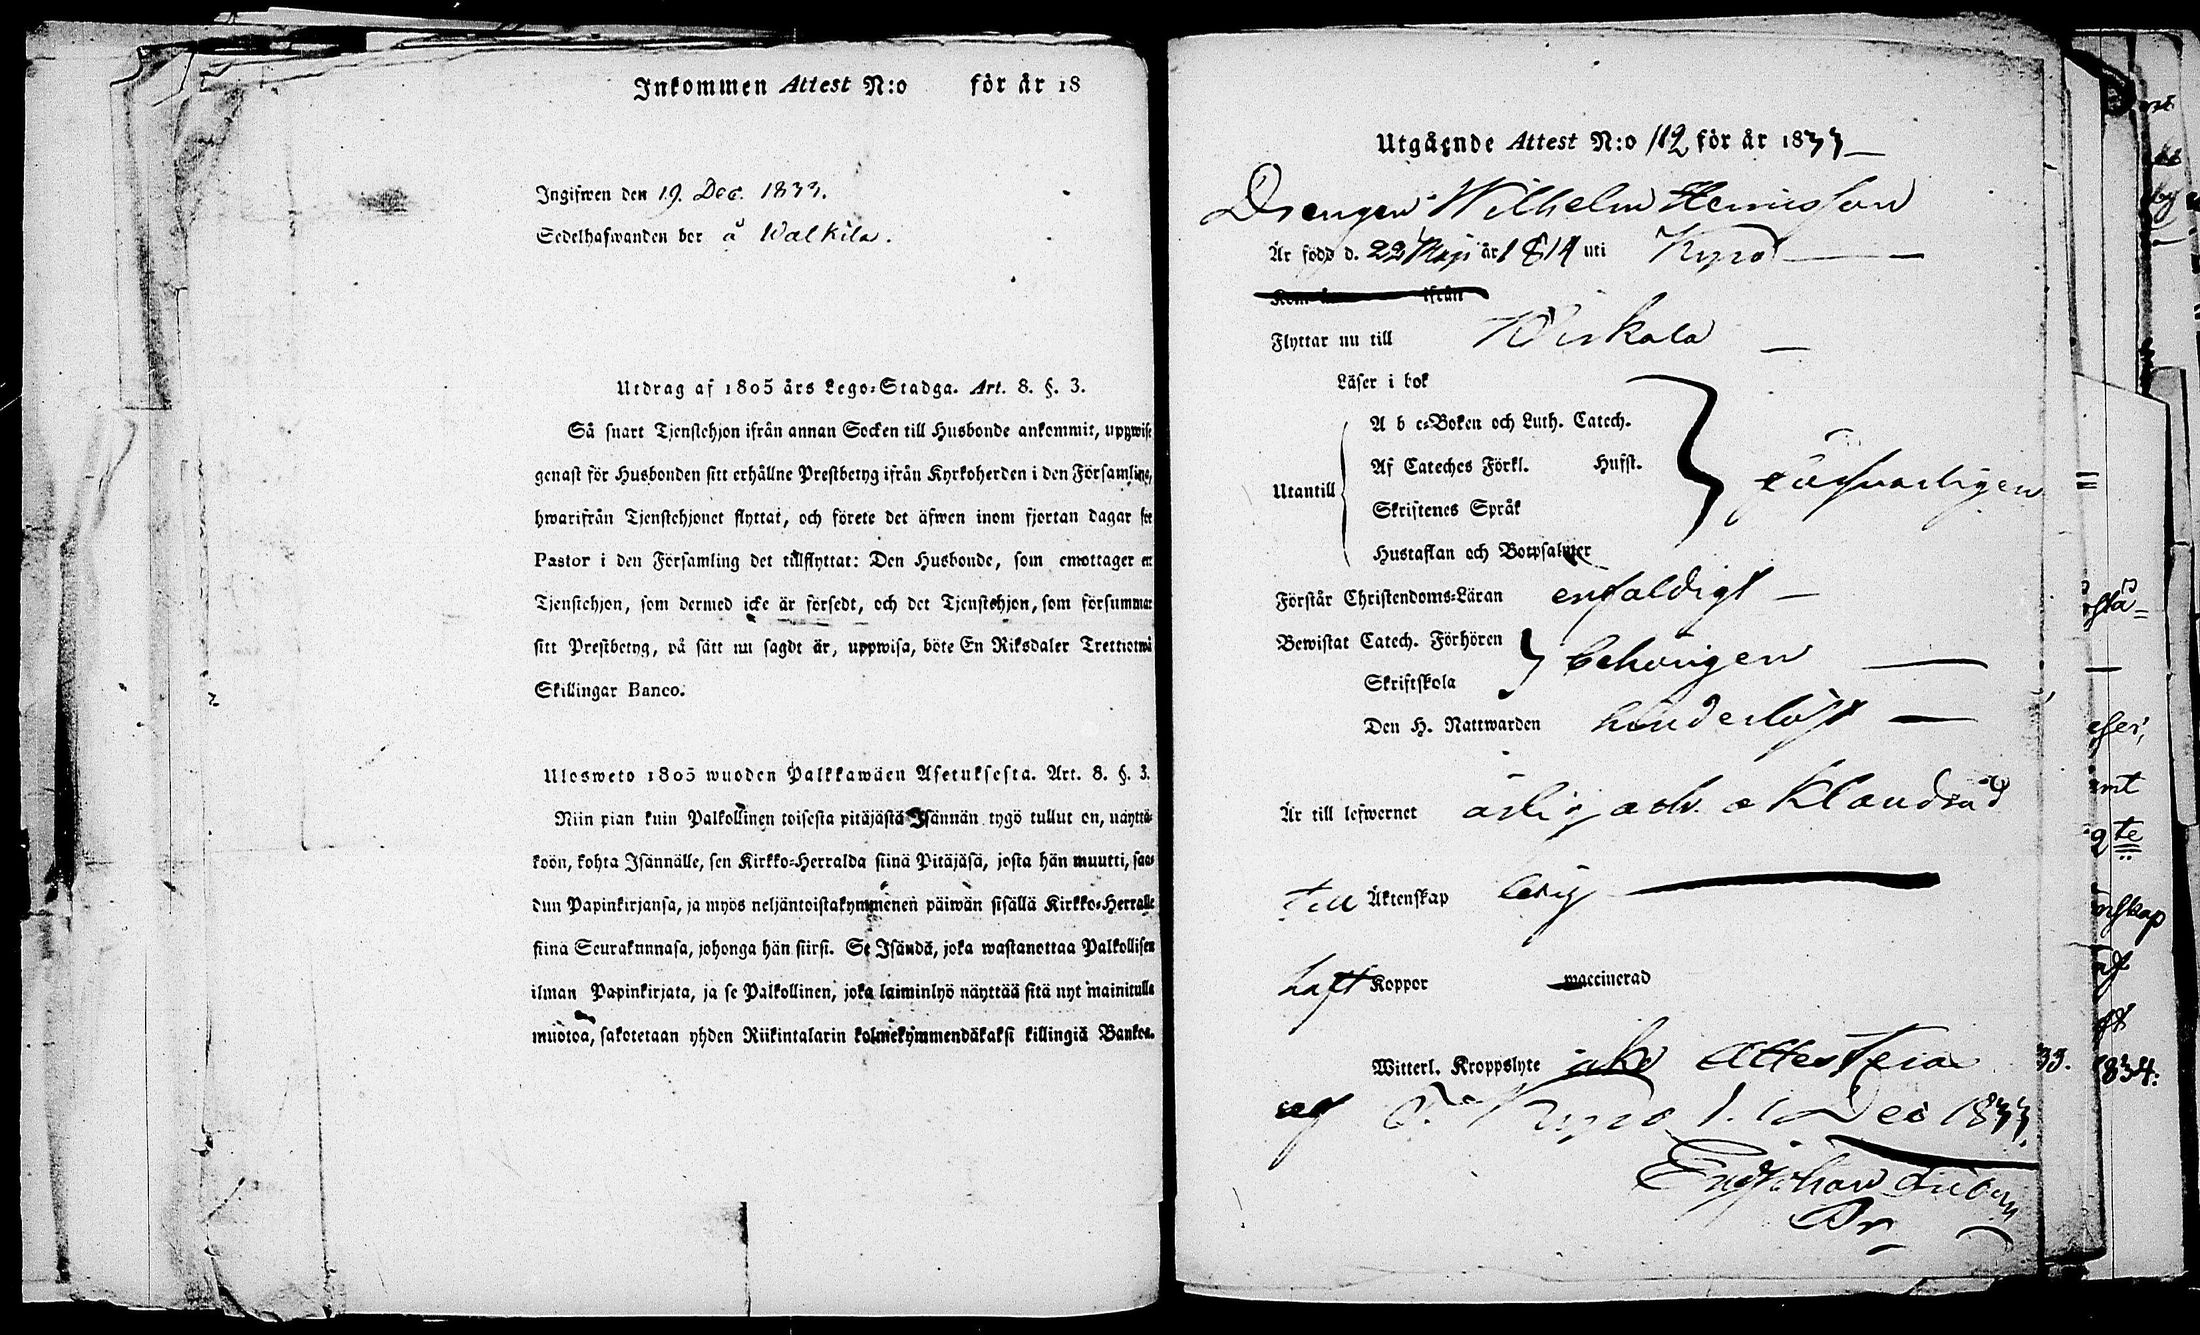 Inkommen Attest N:o för år 18
Ingifwen den 19. Dec. 1833.
Sedelhafwanden bor å Walkila.
Utdrag af 1805 års Lego-Stadga. Art. 8. §. 3.
Så snart Tjenstehjon ifrån annan Socken till Husbonde ankommit, uppwise
genast för Husbonden sitt erhållne Prestbetyg ifrån Kyrkoherden i den Församling,
hwarifrån Tjenstehjonet flyttat, och förete det äfwen inom fjorton dagar för
Pastor i den Församling det tillflyttat: Den Husbonde, som emottager ett
Tjenstehjon, som dermed icke är försedt, och det Tjenstehjon, som försummar
sitt Prestbetyg, på sätt nu sagdt är, uppwisa, böte En Riksdaler Trettiotwå
Skillingar Banco.
Ulosweto 1805 wuoden Palkkawäen Asetuksesta. Art. 8. §. 3.
Niin pian kuin Palkollinen toisesta pitäjästä Isännän tygö tullut on, näyttä-
köön, kohta Isännälle, sen Kirkko-Herralda siinä Pitäjäsä, josta hän muutti, saa-
dun Papinkirjansa, ja myös neljäntoistakymmenen päiwän sisällä Kirkko-Herralle
siinä Seurakunnasa, johonga hän siirsi. Se Isändä, joka wastanottaa Palkollisen
ilman Papinkirjata, ja se Palkollinen, joka laiminlyö näyttää sitä nyt mainitulla
muotoa, sakotetaan yhden Riikintalarin kolmekymmendäkaksi killingiä Bankos.
Utgående Attest N:o 112 för år 1833
Drengen Wilhelm Henricsson
Är född d. 22 Maji år 1814 uti Kyro
Kom ifrån
Flyttar nu till Wirkala
Läser i bok
A b c-Boken och Luth. Catech.
Af Cateches Förkl. Husst.
Utantill försvarligen
Skriftenes Språk
Hustaflan och Botpsalmer
Förstår Christendoms-Läran enfaldigt
Bewistat Catech. Förhören behörigen
Skriftskola
Den H. Nattwarden hinderlöst
Är till lefwernet ärlig och oklandrad
till Äktenskap ledig
haft Koppor waccinerad
Witterl. Kroppslyte icke Attesterar
af Kyro d. Dec 1833.
33. 1834: